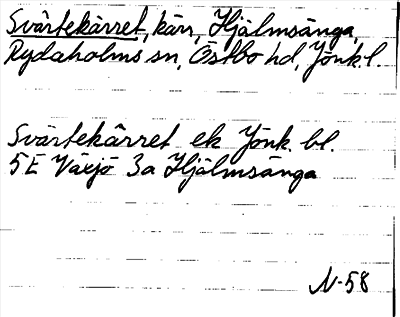 Svärtekärret, kärr, Hjälmsänga,
Rydaholms sn, Östbo hd, Jönk. l.
Svärtekärret ek Jönk. bl.
5E Växjö 3a Hjälmsänga
N-58